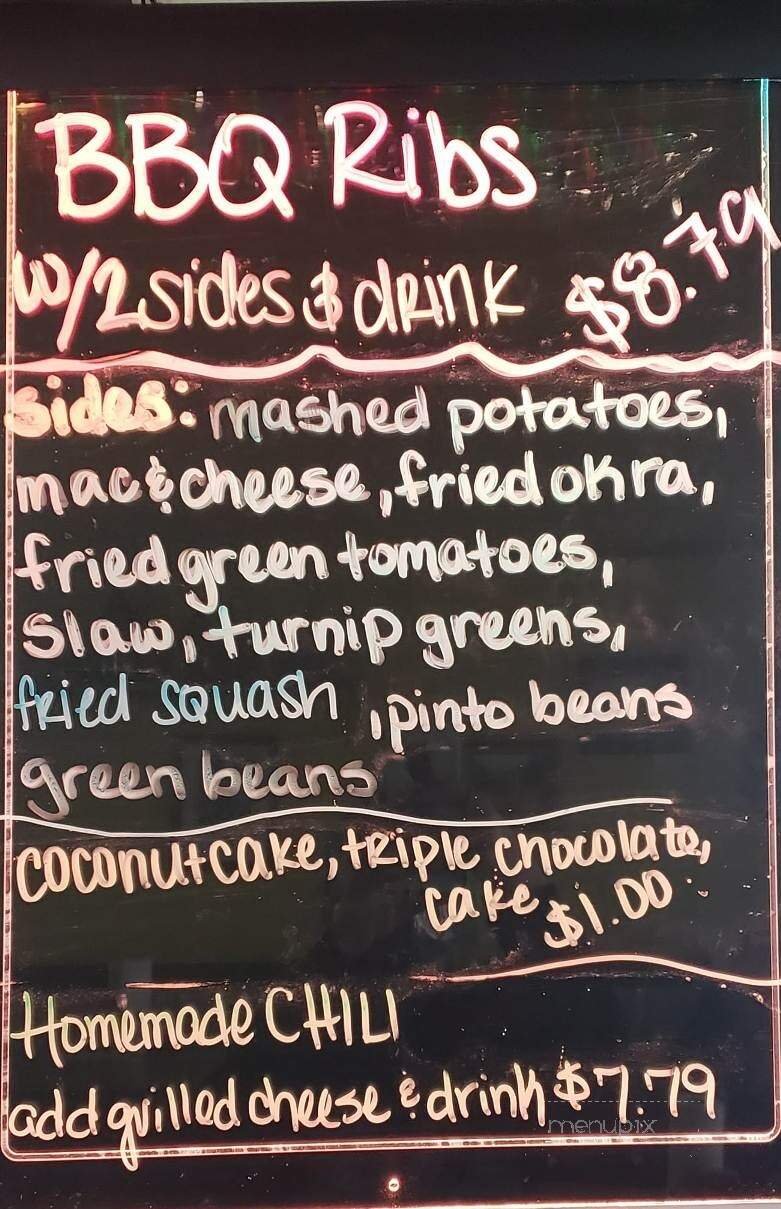 BBQ Ribs
w/2 sides & drink $8.79
sides: mashed potatoes,
mac & cheese, fried okra,
fried green tomatoes,
slaw, turnip greens,
fried squash, pinto beans
green beans
coconut cake, triple chocolate,
cake $1.00
Homemade CHILI
add grilled cheese & drink $7.79
menupix